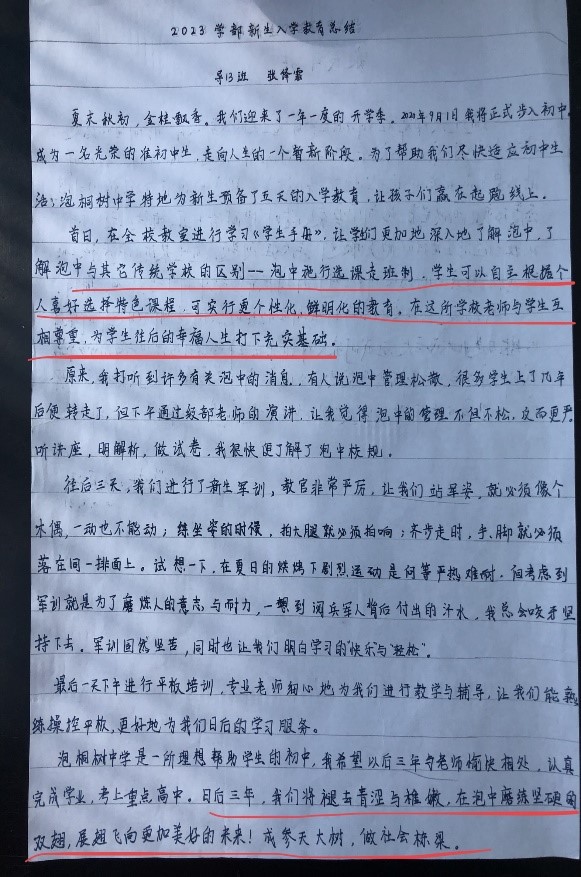 2023 学部新生入学教育总结
导13班 张绎霏
夏末秋初，金桂飘香。我们迎来了一年一度的开学季。2020年9月1日我将正式步入初中，
成为一名光荣的准初中生，走向人生的一个暂新阶段。为了帮助我们尽快适应初中生
活；泡桐树中学特地为新生预备了五天的入学教育，让孩子们赢在起跑线上。
首日，在全校教室进行学习《学生手册》，让学生们更加地深入地了解泡中，了
解泡中与其它传统学校的区别——泡中施行选课走班制，学生可以自主根据个
人喜好选择特色课程，可实行更个性化，鲜明化的教育。在这所学校老师与学生互
相尊重，为学生往后的幸福人生打下充实基础。
原来，我打听到许多有关泡中的消息，有人说泡中管理松散，很多学生上了几年
后便转走了，但下午通过级部老师的演讲，让我觉得泡中的管理不但不松，反而更严。
听讲座，明解析，做试卷，我很快便了解了泡中校规。
往后三天，我们进行了新生军训，教官非常严厉，让我们站军姿，就必须像个
木偶，一动也不能动；练坐姿的时候，拍大腿就必须拍响；齐步走时，手、脚就必须
落在同一排面上。试想一下，在夏日的烘烤下剧烈运动是何等严热难耐，但考虑到
军训就是为了磨炼人的意志与耐力，一想到阅兵军人背后付出的汁水，我总会咬牙坚
持下去。军训固然坐苦，同时也让我们明白学习的“快乐”与“轻松”。
最后一天下午进行平板培训，专业老师细心地为我们进行教学与辅导，让我们能熟
练操控平板，更好地为我们日后的学习服务。
泡桐树中学是一所理想帮助学生的初中，我希望以后三年与老师愉快相处，认真
完成学业，考上重点高中。日后三年，我们将褪去青涩与稚嫩，在泡中磨练坚硬的
双翅，展翅飞向更加美好的未来！成参天大树，做社会栋梁。